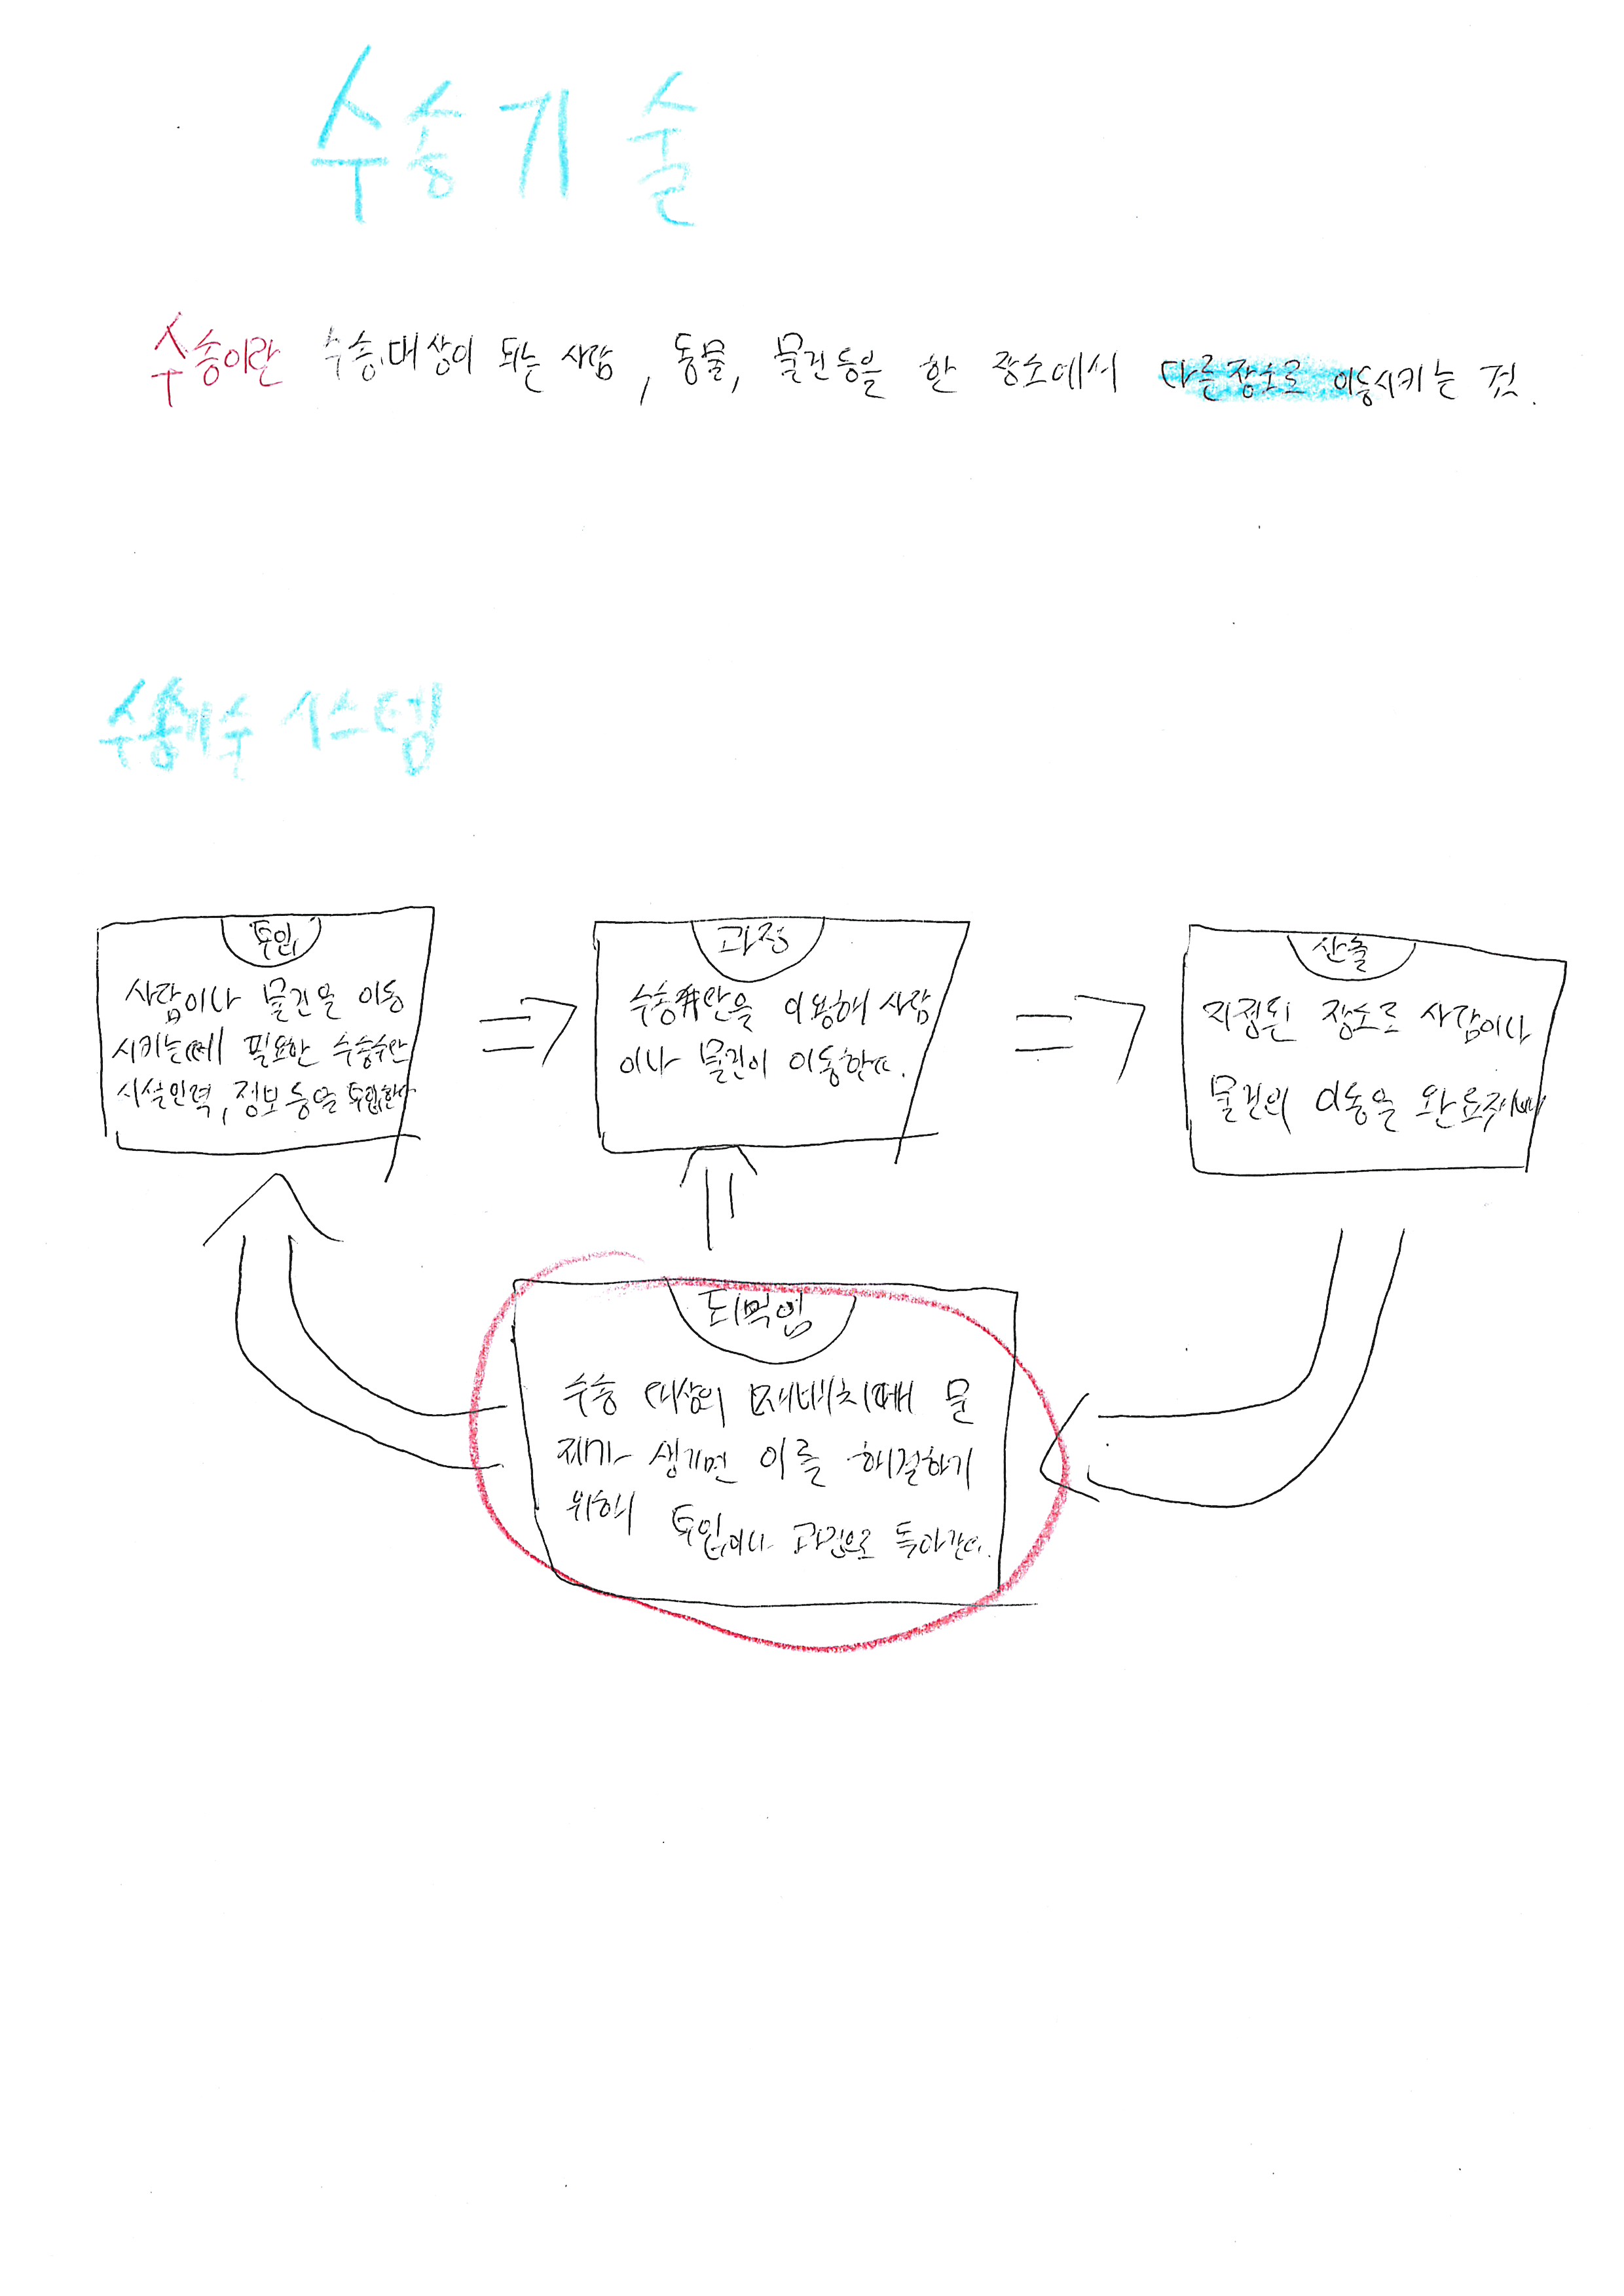 수송기술
수송이란 수송대상이 되는 사람, 동물, 물건등을 한 장소에서 다른장소로 이동시키는 것.
수송기술 시스템
투입
사람이나 물건을 이동
시키는데 필요한 수송수단
시설인력, 정보등을 투입한다
과정
수송수단을 이용해 사람
이나 물건이 이동한다.
산출
지정된 장소로 사람이나
물건의 이동을 완료
되먹임
수송 대상의 재배치때 문
제가 생기면 이를 해결하기
위해 투입이나 과정으로 돌아간다.